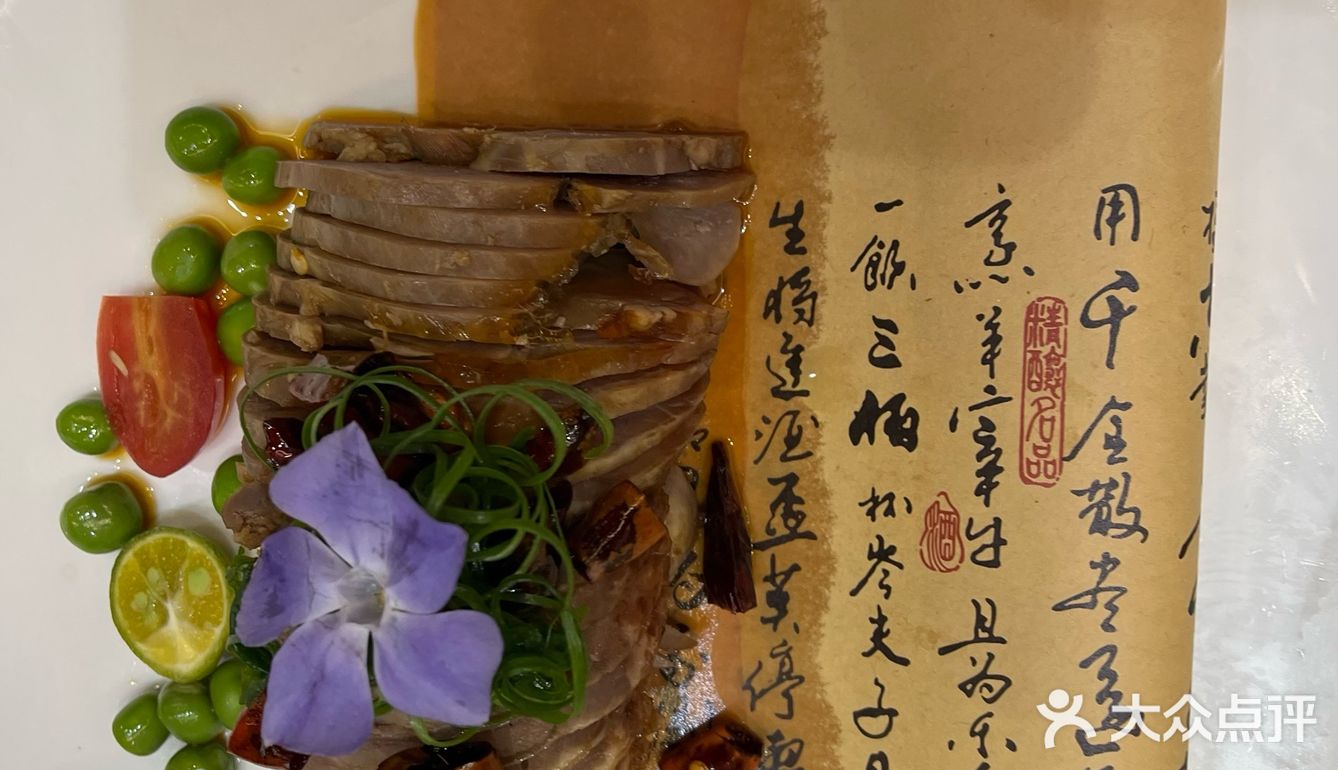 用千金散尽还
烹羊宰牛且为乐
精釀名品
酒
一飲三百杯岑夫子
生将進酒盃莫停
大众点评